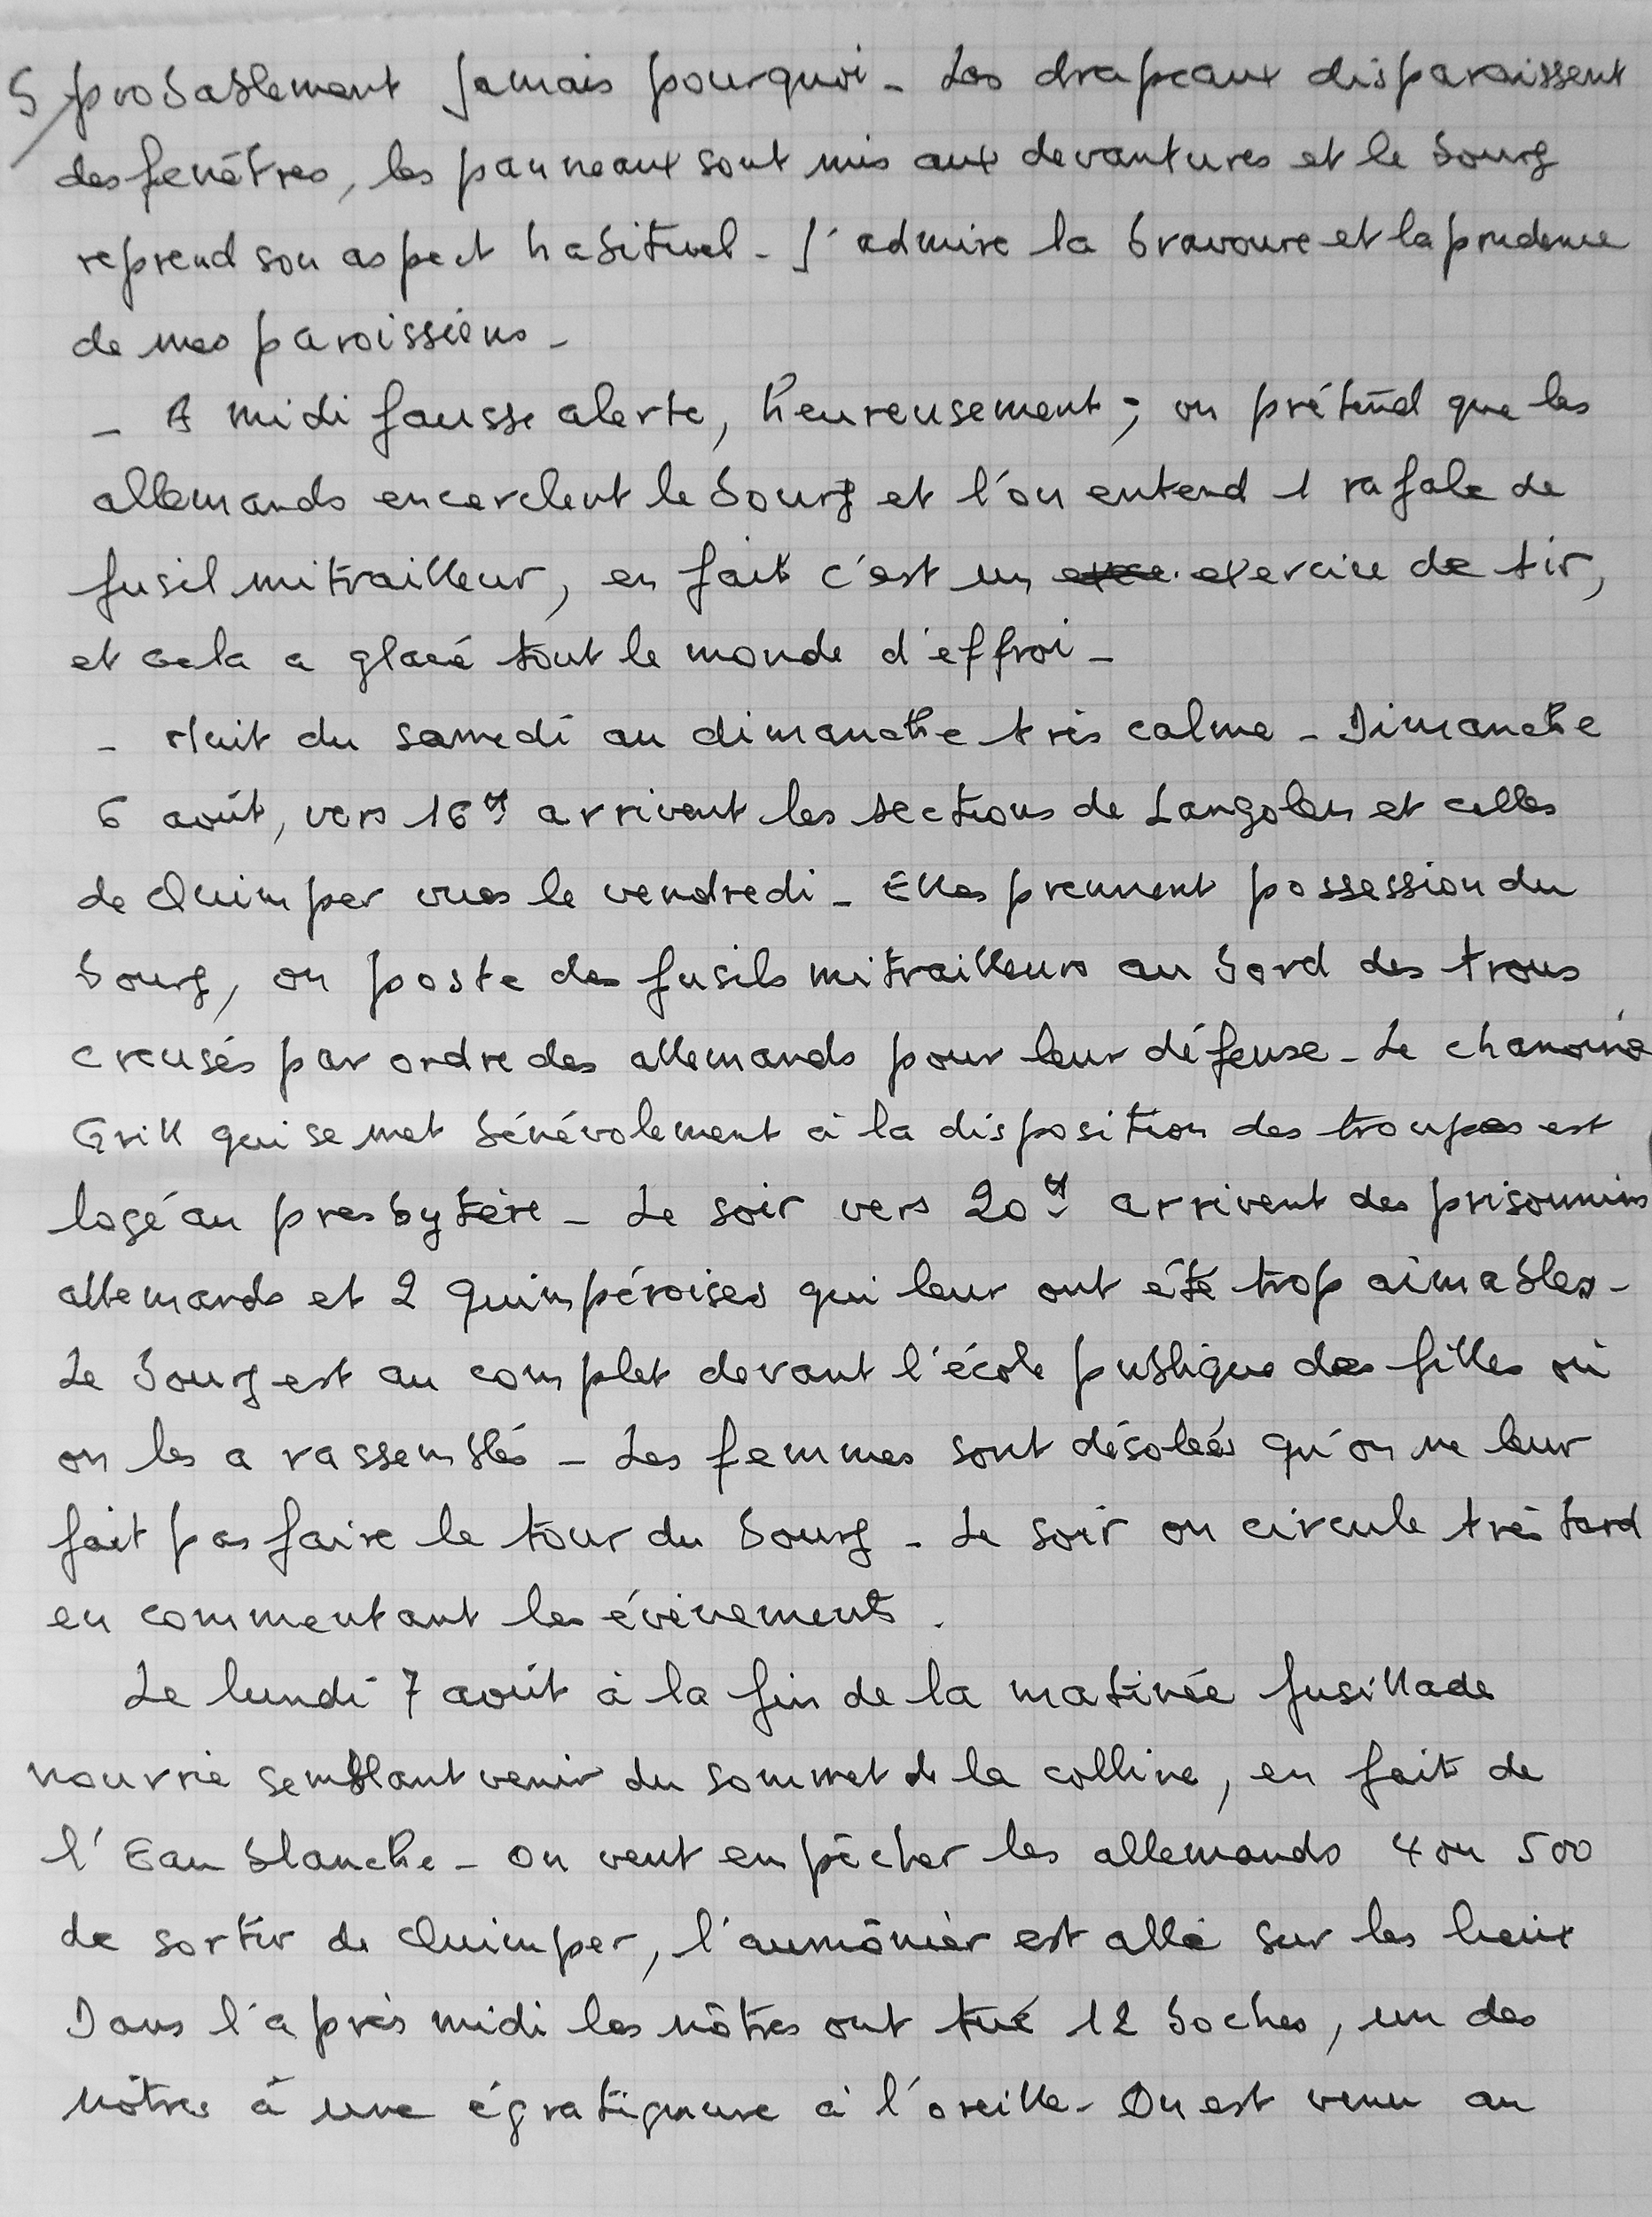 5/ probablement jamais pourquoi - Les drapeaux disparaissent
des fenêtres, les panneaux sont mis aux devantures et le bourg
reprend son aspect habituel - J'admire la bravoure et la prudence
de mes paroissiens -
- A midi fausse alerte, heureusement ; on prétend que les
allemands encerclent le bourg et l'on entend 1 rafale de
fusil mitrailleur, en fait c'est un exercice de tir,
et cela a glacé tout le monde d'effroi -
- Nuit du samedi au dimanche très calme - Dimanche
6 août, vers 16H arrivent les sections de Langolen et celles
de Quimper vues le vendredi - Elles prennent possession du
bourg, on poste des fusils mitrailleurs au bord des trous
creusés par ordre des allemands pour leur défense - Le chanoine
Grill qui se met bénévolement à la disposition des troupes est
logé au presbytère - Le soir vers 20H arrivent des prisonniers
allemands et 2 quimpéroises qui leur ont été trop aimables -
Le bourg est au complet devant l'école publique des filles où
on les a rassemblés - Les femmes sont désolées qu'on ne leur
fait pas faire le tour du bourg - Le soir on circule très tard
en commentant les évènements.
Le lundi 7 août à la fin de la matinée fusillade
nourrie semblant venir du sommet de la colline, en fait de
l'Eau blanche - On veut empêcher les allemands 4 ou 500
de sortir de Quimper, l'aumônier est allé sur les lieux
Dans l'après midi les nôtres ont tué 12 boches, un des
nôtres à une égratignure à l'oreille - On est venu au